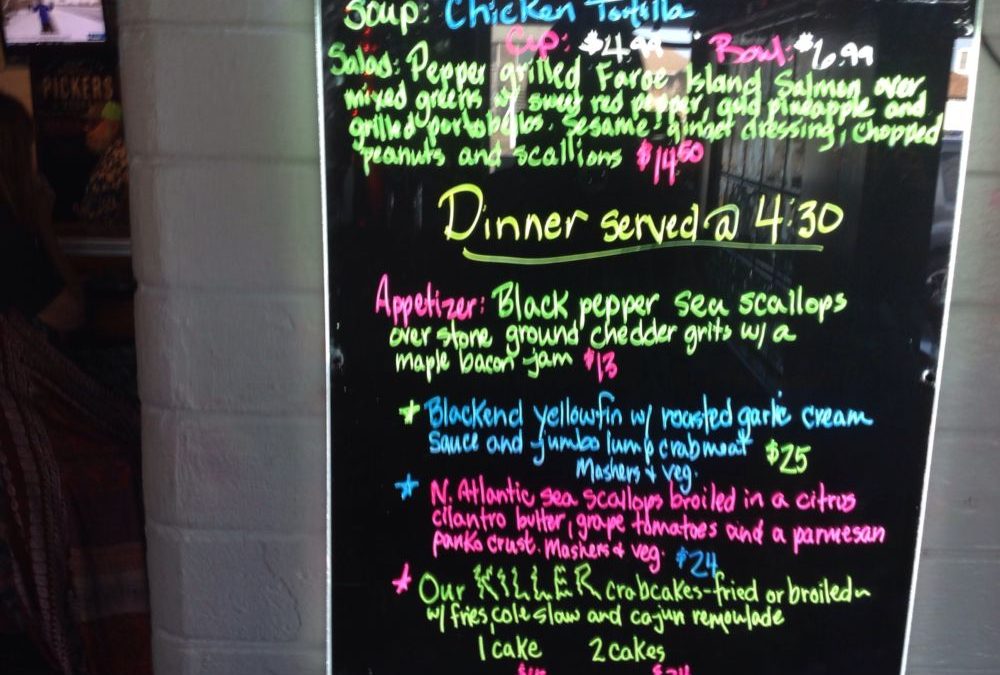 PICKERS
Soup: Chicken Tortilla
Cup: $4.99 Bowl: $6.99
Salad: Pepper grilled Faroe Island Salmon over
mixed greens w/ sweet red pepper, gold pineapple and
grilled portobellos. Sesame-ginger dressing, chopped
peanuts and scallions $14.50
Dinner served @ 4:30
Appetizer: Black pepper sea scallops
over stone ground chedder grits w/ a
maple bacon jam $13
Blackend yellowfin w/ roasted garlic cream
sauce and jumbo lump crabmeat $25
Mashers & veg.
N. Atlantic sea scallops broiled in a citrus
cilantro butter, grape tomatoes and a parmesan
panko crust. Mashers & veg. $24
Our KILLER crabcakes-fried or broiled~
w/ fries, cole slaw and cajun remoulade
1 cake 2 cakes